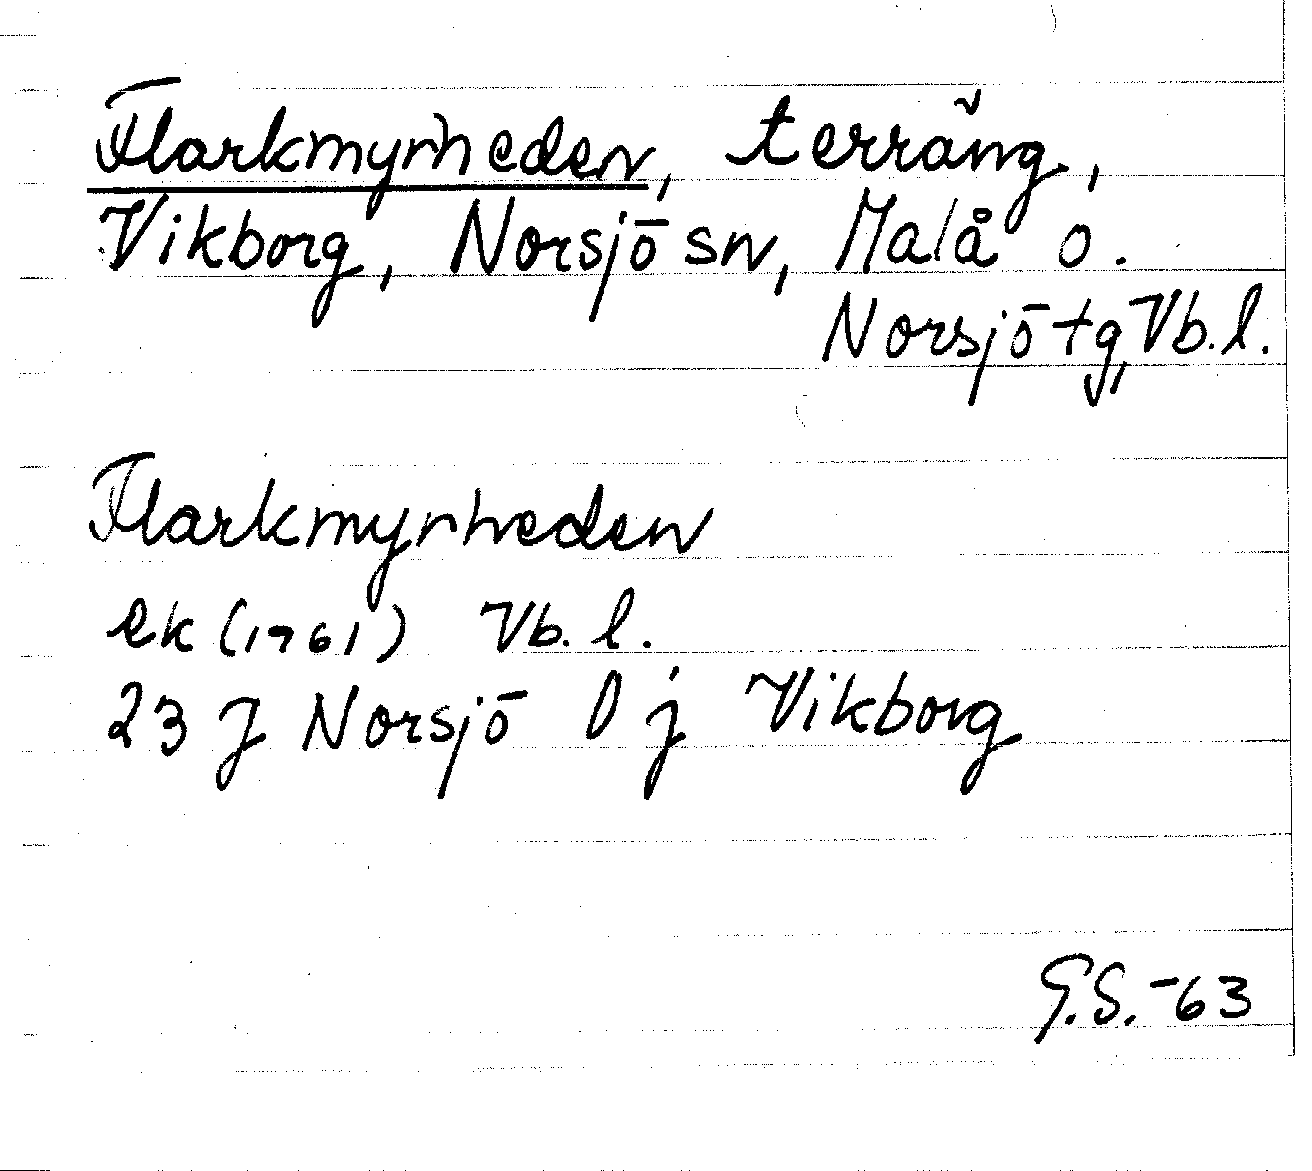 Flarkmyrheden, terräng,
Vikborg, Norsjö sn, Malå o.
Norsjö tg, Vb. l.
Flarkmyrheden
ek (1961) Vb. l.
23 J Norsjö 0 j Vikborg
G.S. -63